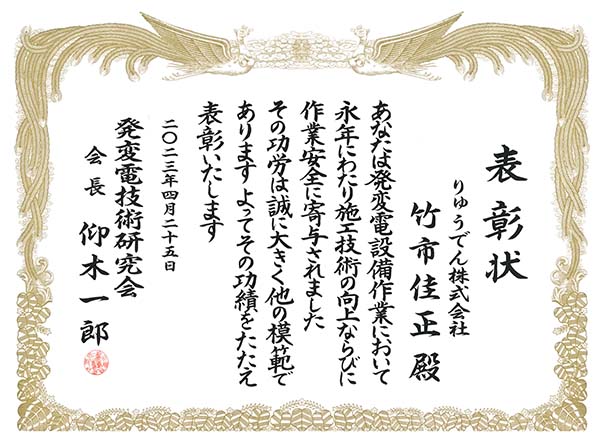 表彰状
りゅうでん株式会社
竹市佳正殿
あなたは発変電設備作業において
永年にわたり施工技術の向上ならびに
作業安全に寄与されました
その功労は誠に大きく他の模範で
あります よってその功績をたたえ
表彰いたします
二〇二三年四月二十五日
発変電技術研究会
会長 仰木一郎